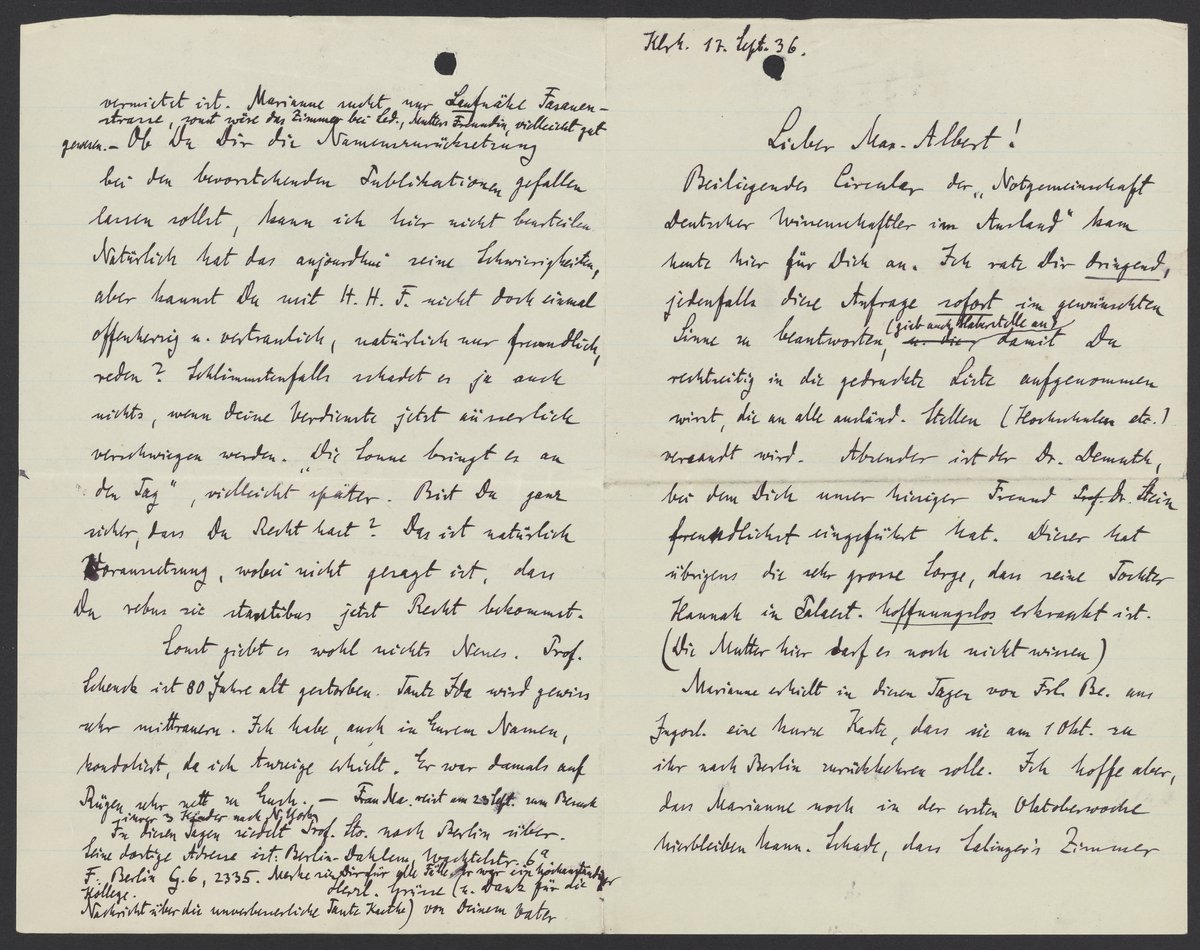 Klrh. 17. Sept. 36.
Lieber Max-Albert!
Beiliegendes Circular der „Notgemeinschaft
Deutscher Wissenschaftler im Ausland" kam
heute hier für Dich an. Ich rate Dir dringend,
jedenfalls diese Anfrage sofort im gewünschten
Sinne zu beantworten, (gieb auch Haberstelle an) damit Du
rechtzeitig in die gedruckte Liste aufgenommen
wirst, die an alle ausländ. Stellen (Hochschulen etc.)
versandt wird. Absender ist der Dr. Demuth,
bei dem Dich unser hiesiger Freund Prof. Dr. Stein
freundlichst eingeführt hat. Dieser hat
übrigens die sehr grosse Sorge, dass seine Tochter
Hannah in Palaest. hoffnungslos erkrankt ist.
(Die Mutter hier darf es noch nicht wissen)
Marianne erhielt in diesen Tagen von Frl. Be. aus
Jugosl. eine kurze Karte, dass sie am 1 Okt. zu
ihr nach Berlin zurückkehren solle. Ich hoffe aber,
dass Marianne noch in der ersten Oktoberwoche
hierbleiben kann. Schade, dass Salinger's Zimmer
vermietet ist. Marianne sucht nur Laufnähe Fasanen-
strasse, sonst wäre das Zimmer bei Led., Mutters Freundin, vielleicht gut
gewesen. – Ob Du Dir die Namenszurücksetzung
bei den bevorstehenden Publikationen gefallen
lassen sollst, kann ich hier nicht beurteilen
Natürlich hat das aujourdhui seine Schwierigkeiten,
aber kannst Du mit H. H. F. nicht doch einmal
offenherzig u. vertraulich, natürlich nur freundlich,
reden? Schlimmstenfalls schadet es ja auch
nichts, wenn deine Verdienste jetzt äusserlich
verschwiegen werden. „Die Sonne bringt es an
den Tag", vielleicht später. Bist Du ganz
sicher, dass Du Recht hast? Das ist natürlich
Voraussetzung, wobei nicht gesagt ist, dass
Du rebus sic stantibus jetzt Recht bekommst.
Sonst giebt es wohl nichts Neues. Prof.
Schenck ist 80 Jahre alt gestorben. Tante Ida wird gewiss
sehr mittrauern. Ich habe, auch in Eurem Namen,
kondoliert, da ich Anzeige erhielt. Er war damals auf
Rügen sehr nett zu Euch. – Frau Na. reist am 23 Sept. zum Besuch
ihrer 3 Kinder nach N.York
In diesen Tagen siedelt Prof. Sto. nach Berlin über.
Seine dortige Adresse ist: Berlin-Dahlem, Wachtelstr. 6ª
F. Berlin G.6, 2335. Merke sie Dir für alle Fälle. Er war ein hochanständiger
Kollege. Herzl. Grüsse (u. Dank für die
Nachricht über die unverbesserliche Tante Kaethe) von Deinem Vater